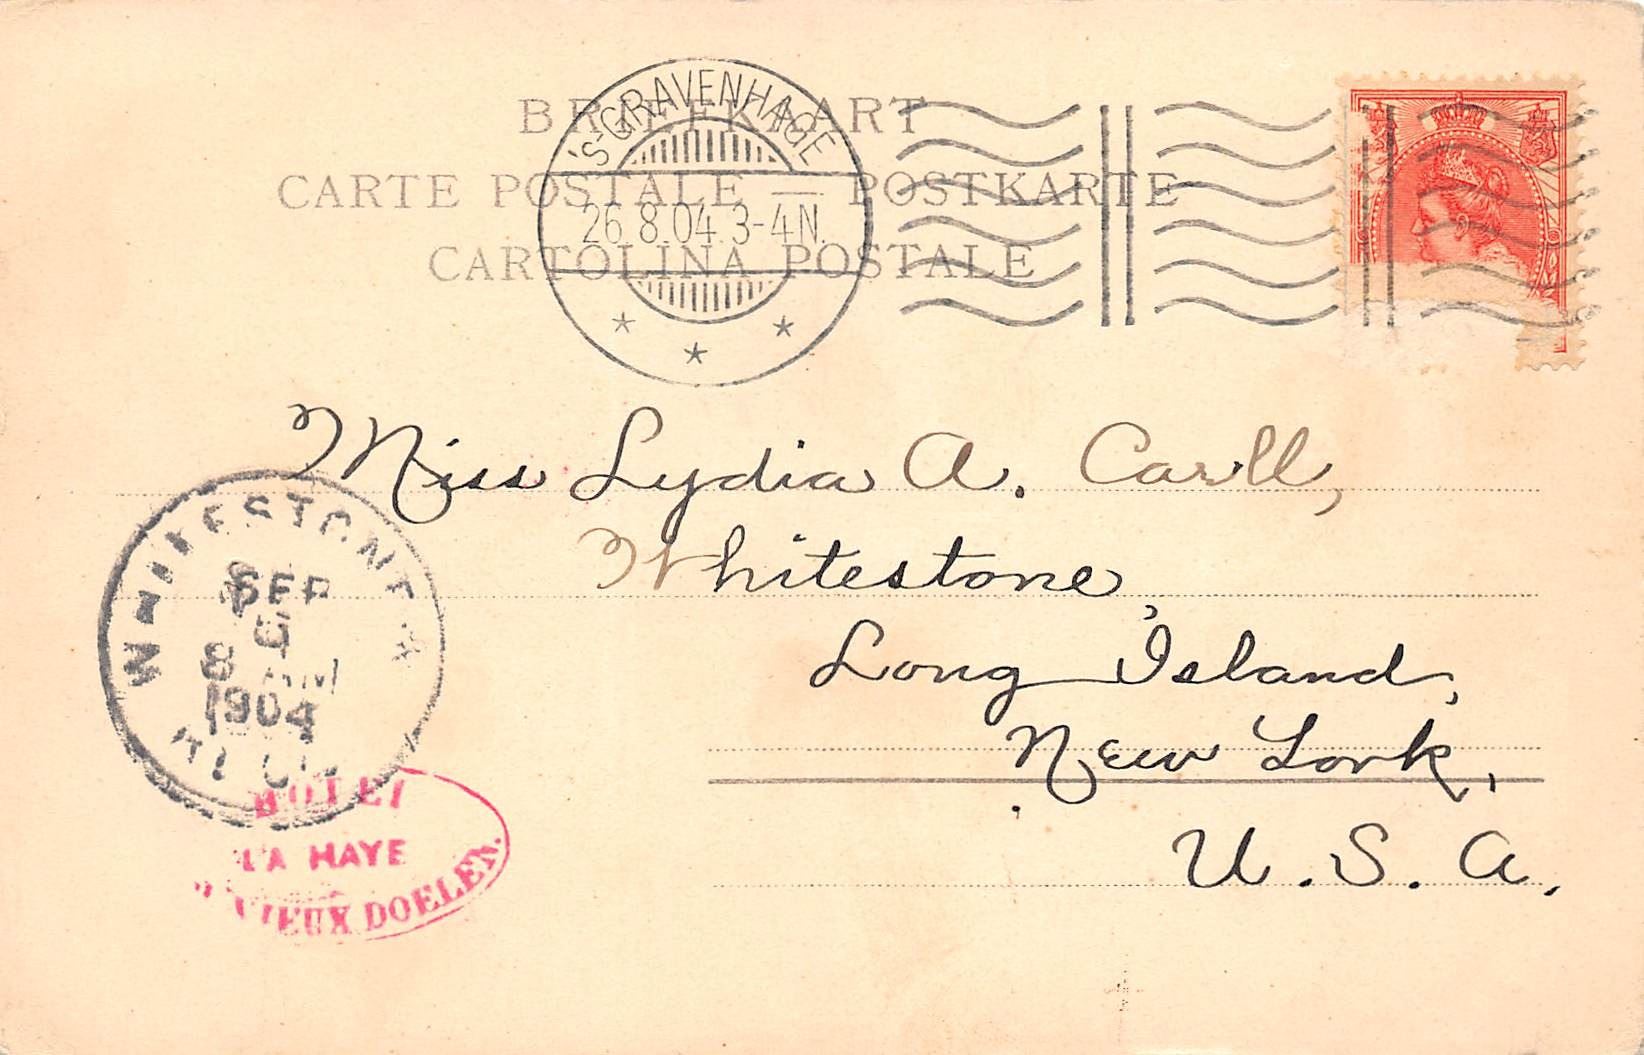 BRIEFKAART
CARTE POSTALE — POSTKARTE
CARTOLINA POSTALE
'S-GRAVENHAGE
26.8.04.3-4N.
Miss Lydia A. Carll,
Whitestone,
Long Island,
New York,
U.S.A.
WHITESTONE
SEP
5
8 AM
1904
HOTEL
LA HAYE
VIEUX DOELEN.